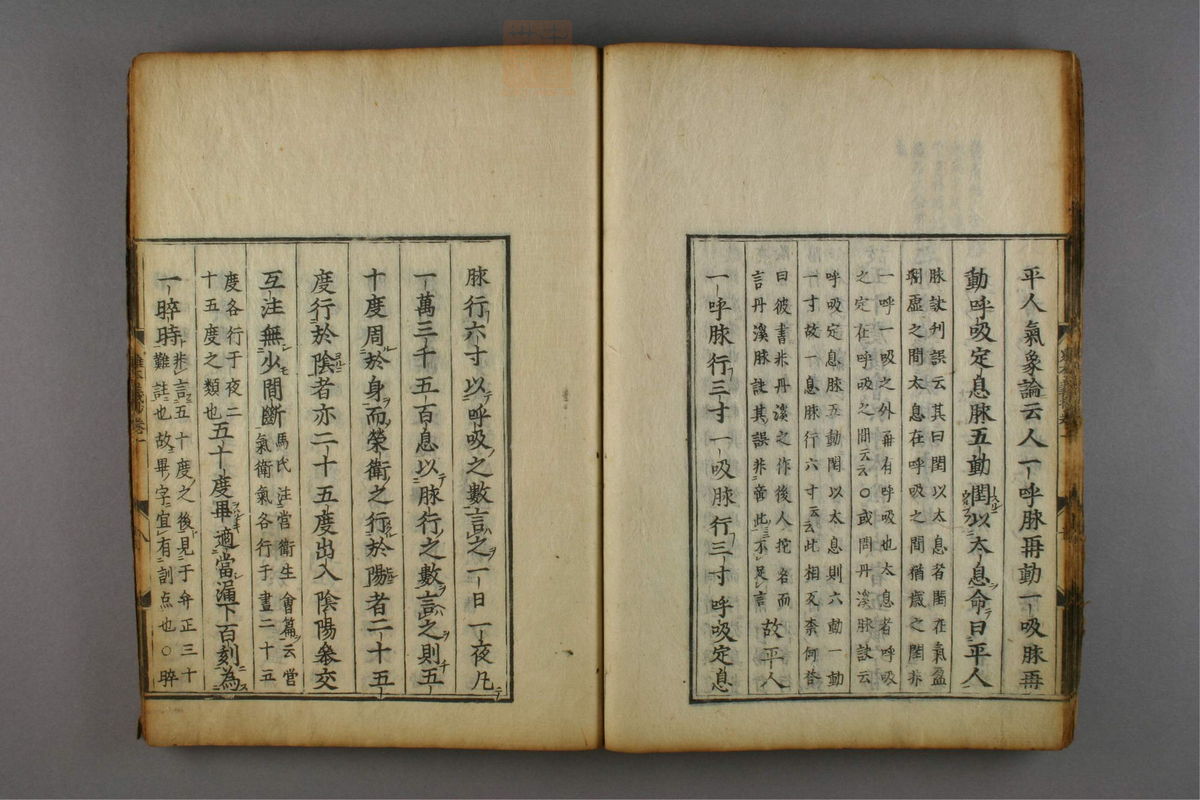 平人氣象論云人一呼脉再動一吸脉再
動呼吸定息脉五動閏以太息命曰平人
脉訣刊誤云其曰閏以太息者閏在氣盈
朔虛之間太息在呼吸之間猶歲之閏非
一呼一吸之外再有呼吸也太息者呼吸
之定在呼吸之間云云〇或問丹溪脉訣云
呼吸定息脉五動閏以太息則六動一動
一寸故一息脉行六寸云云此相反柰何荅
曰彼書非丹溪之作後人托名而
言丹溪脉訣其誤非啻此不足言
故平人
一呼脉行三寸一吸脉行三寸呼吸定息
脉行六寸以呼吸之數言之一日一夜凡
一萬三千五百息以脉行之數言之則五
十度周於身而榮衛之行於陽者二十五
度行於陰者亦二十五度出入陰陽參交
互注無少間斷
馬氏注營衛生會篇云營
氣衛氣各行于晝二十五
度各行于夜二
十五度之類也
五十度畢適當漏下百刻為
一晬時
非言五十度之後見于弁正三十
難註也故畢字宜有訓点也〇晬